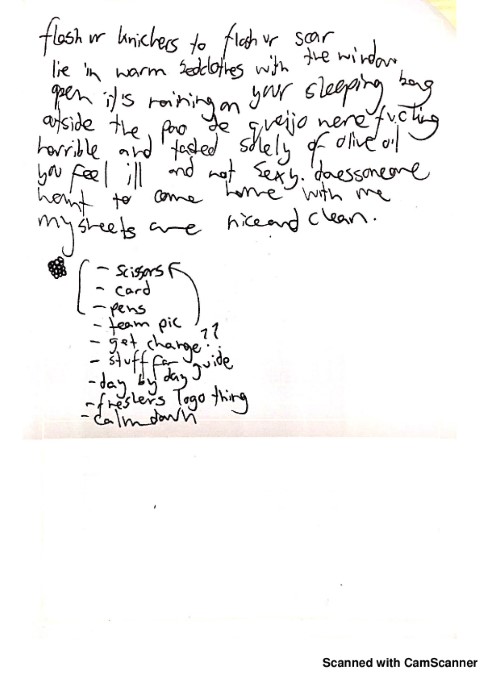 flash ur knickers to flash ur scar
lie in warm bedclothes with the window
open it is raining on your sleeping bag
outside the pao de queijo were fucking
horrible and tasted solely of olive oil
you feel ill and not sexy. does someone
want to come home with me
my sheets are nice and clean.
- scissors
- card
- pens
- team pic
- get change??
- stuff for guide
- day by day
- freshers logo thing
- calm down
Scanned with CamScanner